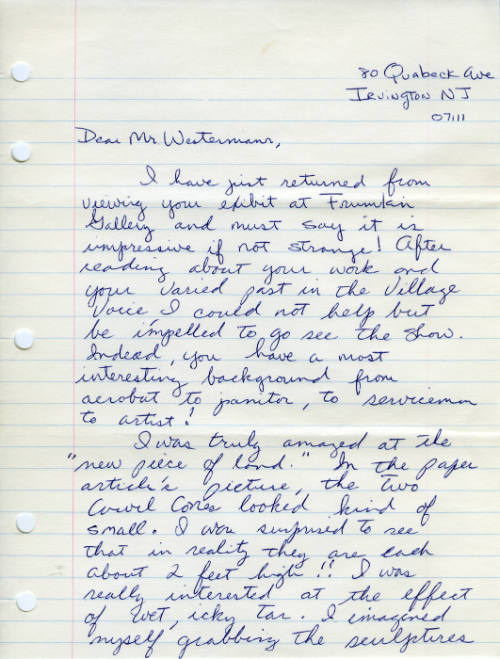 80 Quabeck Ave
Irvington NJ
07111
Dear Mr. Westermann,
I have just returned from
viewing your exibit at Frumkin
Gallery and must say it is
impressive if not strange! After
reading about your work and
your varied past in the Village
Voice I could not help but
be impelled to go see the show.
Indeed, you have a most
interesting background from
acrobat to janitor, to serviceman
to artist!
I was truly amazed at the
"new piece of land." In the paper
article's picture, the two
Cones looked kind of
small. I was surprised to see
that in reality they are each
about 2 feet high!! I was
really interested at the effect
of wet, icky tar. I imagined
myself grabbing the sculptures